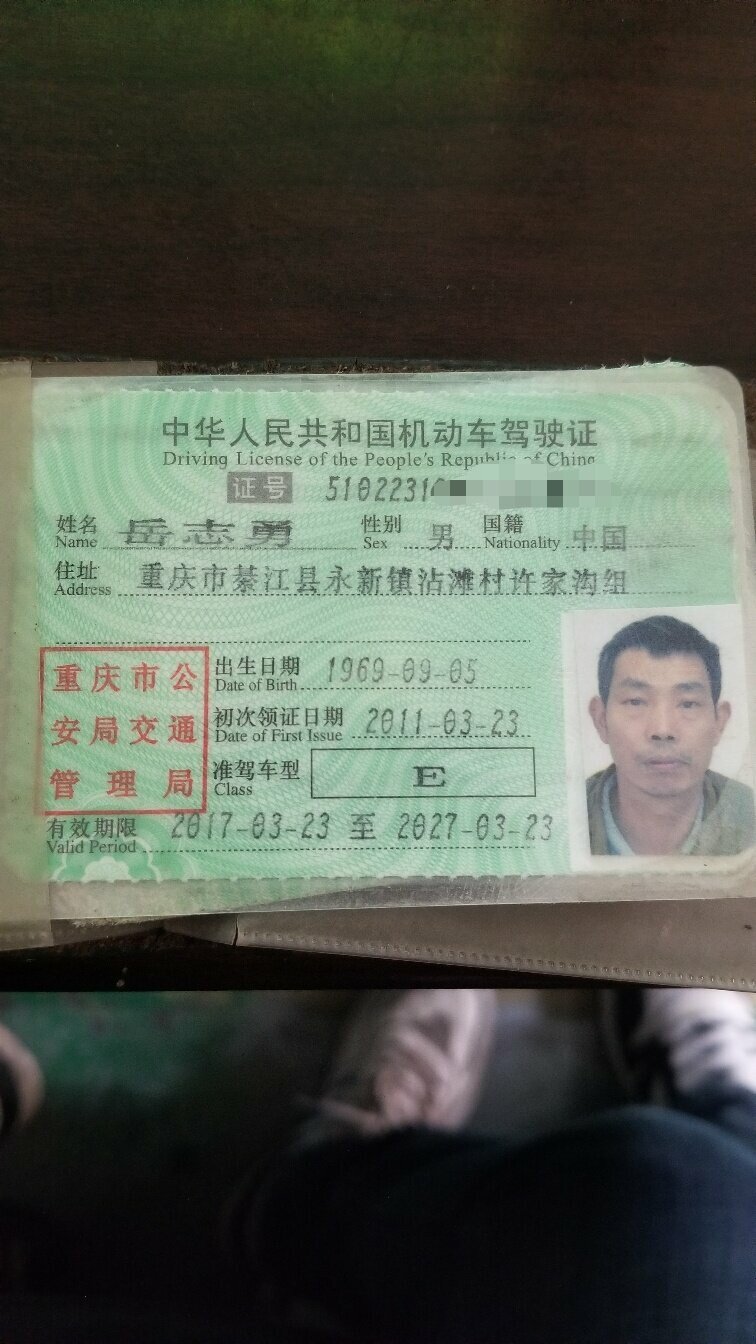 中华人民共和国机动车驾驶证
Driving License of the People's Republic of China
证号 5102231
姓名 岳志勇 性别 男 国籍 中国
Name Sex Nationality
住址 重庆市綦江县永新镇沾滩村许家沟组
Address
重庆市公
安局交通
管理局
出生日期 1969-09-05
Date of Birth
初次领证日期 2011-03-23
Date of First Issue
准驾车型 E
Class
有效期限 2017-03-23 至 2027-03-23
Valid Period